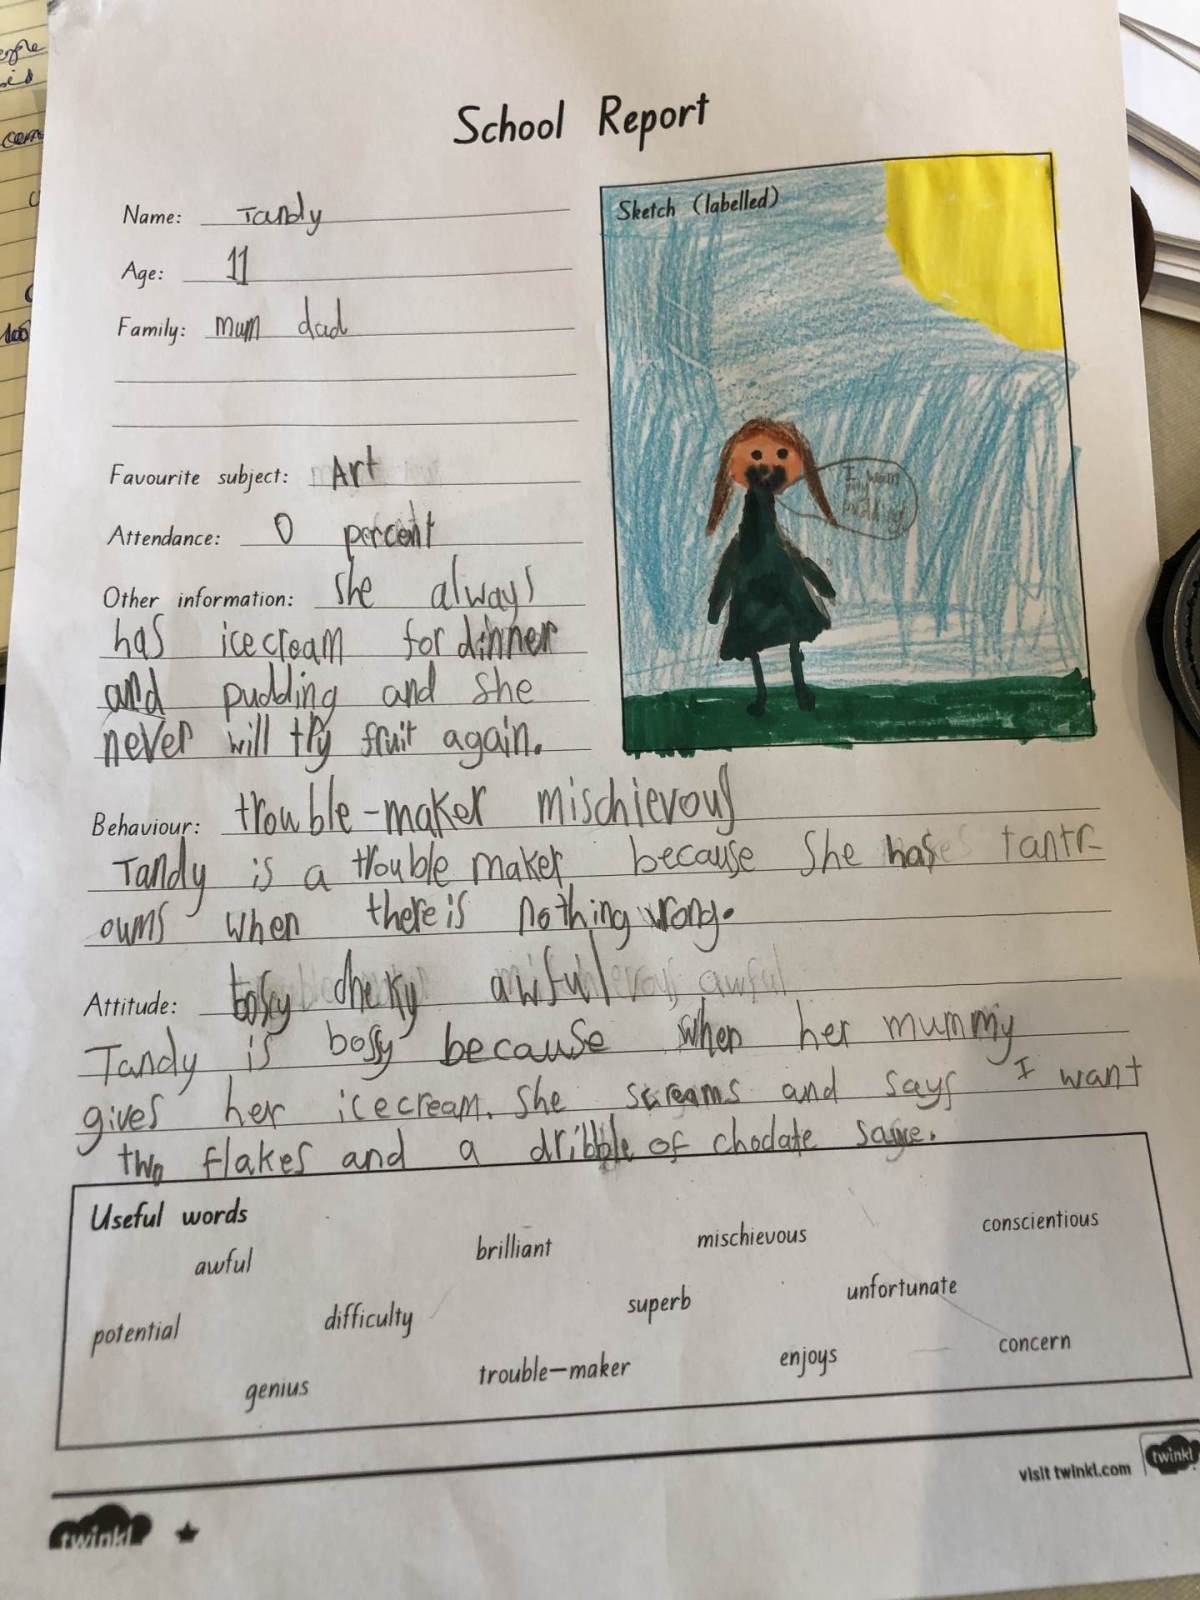 School Report
Name: Tandy
Age: 11
Family: mum dad
Favourite subject: Art
Attendance: 0 percent
Other information: She always
has icecream for dinner
and pudding and she
never will try fruit again.
Sketch (labelled)
I want
my
pudding
Behaviour: trouble-maker mischievous
Tandy is a trouble maker because She has tantr-
oums when there is nothing wrong.
Attitude: bossy cheky awful
Tandy is bossy because when her mummy
gives her icecream. She screams and says I want
two flakes and a dribble of choclate
Useful words
awful brilliant mischievous conscientious
potential difficulty superb unfortunate
genius trouble-maker enjoys concern
visit twinkl.com
twinkl
twinkl